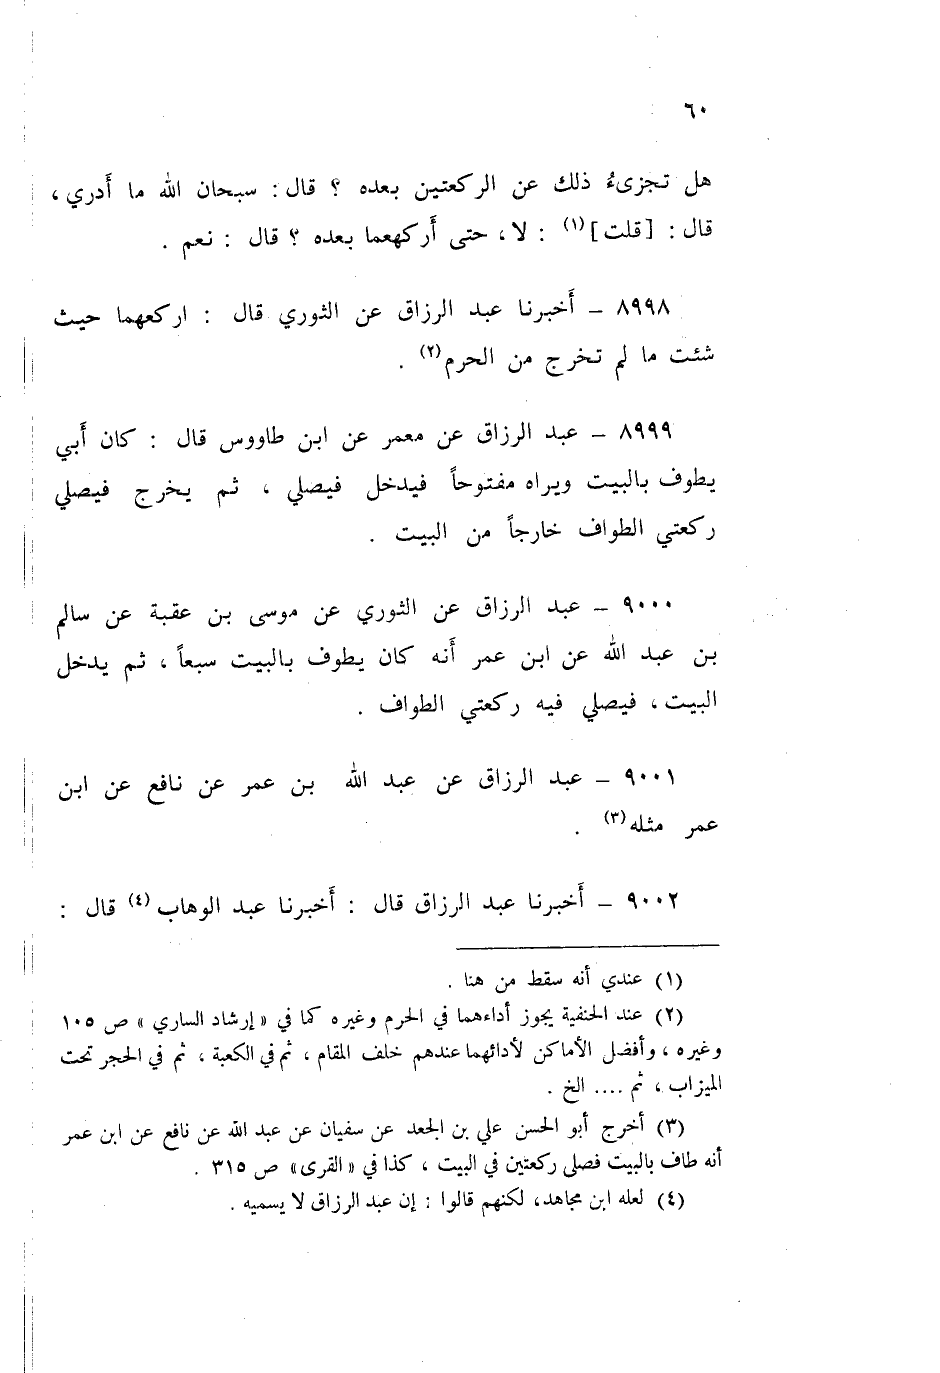 ٦٠
هل تجزىءُ ذلك عن الركعتين بعده ؟ قال : سبحان الله ما أَدري ،
قال : [قلت](١) : لا ، حتى أَركهعما بعده ؟ قال : نعم .
٨٩٩٨ – أَخبرنا عبد الرزاق عن الثوري قال : اركعهما حيث
شئت ما لم تخرج من الحرم(٢) .
٨٩٩٩ – عبد الرزاق عن معمر عن ابن طاووس قال : كان أَبي
يطوف بالبيت ويراه مفتوحاً فيدخل فيصلي ، ثم يخرج فيصلي
ركعتي الطواف خارجاً من البيت .
٩٠٠٠ – عبد الرزاق عن الثوري عن موسى بن عقبة عن سالم
بن عبد الله عن ابن عمر أَنه كان يطوف بالبيت سبعاً ، ثم يدخل
البيت ، فيصلي فيه ركعتي الطواف .
٩٠٠١ – عبد الرزاق عن عبد الله بن عمر عن نافع عن ابن
عمر مثله(٣) .
٩٠٠٢ – أَخبرنا عبد الرزاق قال : أَخبرنا عبد الوهاب(٤) قال :
(١) عندي أنه سقط من هنا .
(٢) عند الحنفية يجوز أداءهما في الحرم وغيره كما في «إرشاد الساري» ص ١٠٥
وغيره ، وأفضل الأماكن لأدائهما عندهم خلف المقام ، ثم في الكعبة ، ثم في الحجر تحت
الميزاب ، ثم .... الخ .
(٣) أخرج أبو الحسن علي بن الجعد عن سفيان عن عبد الله عن نافع عن ابن عمر
أنه طاف بالبيت فصلى ركعتين في البيت ، كذا في «القرى» ص ٣١٥ .
(٤) لعله ابن مجاهد، لكنهم قالوا : إن عبد الرزاق لا يسميه .